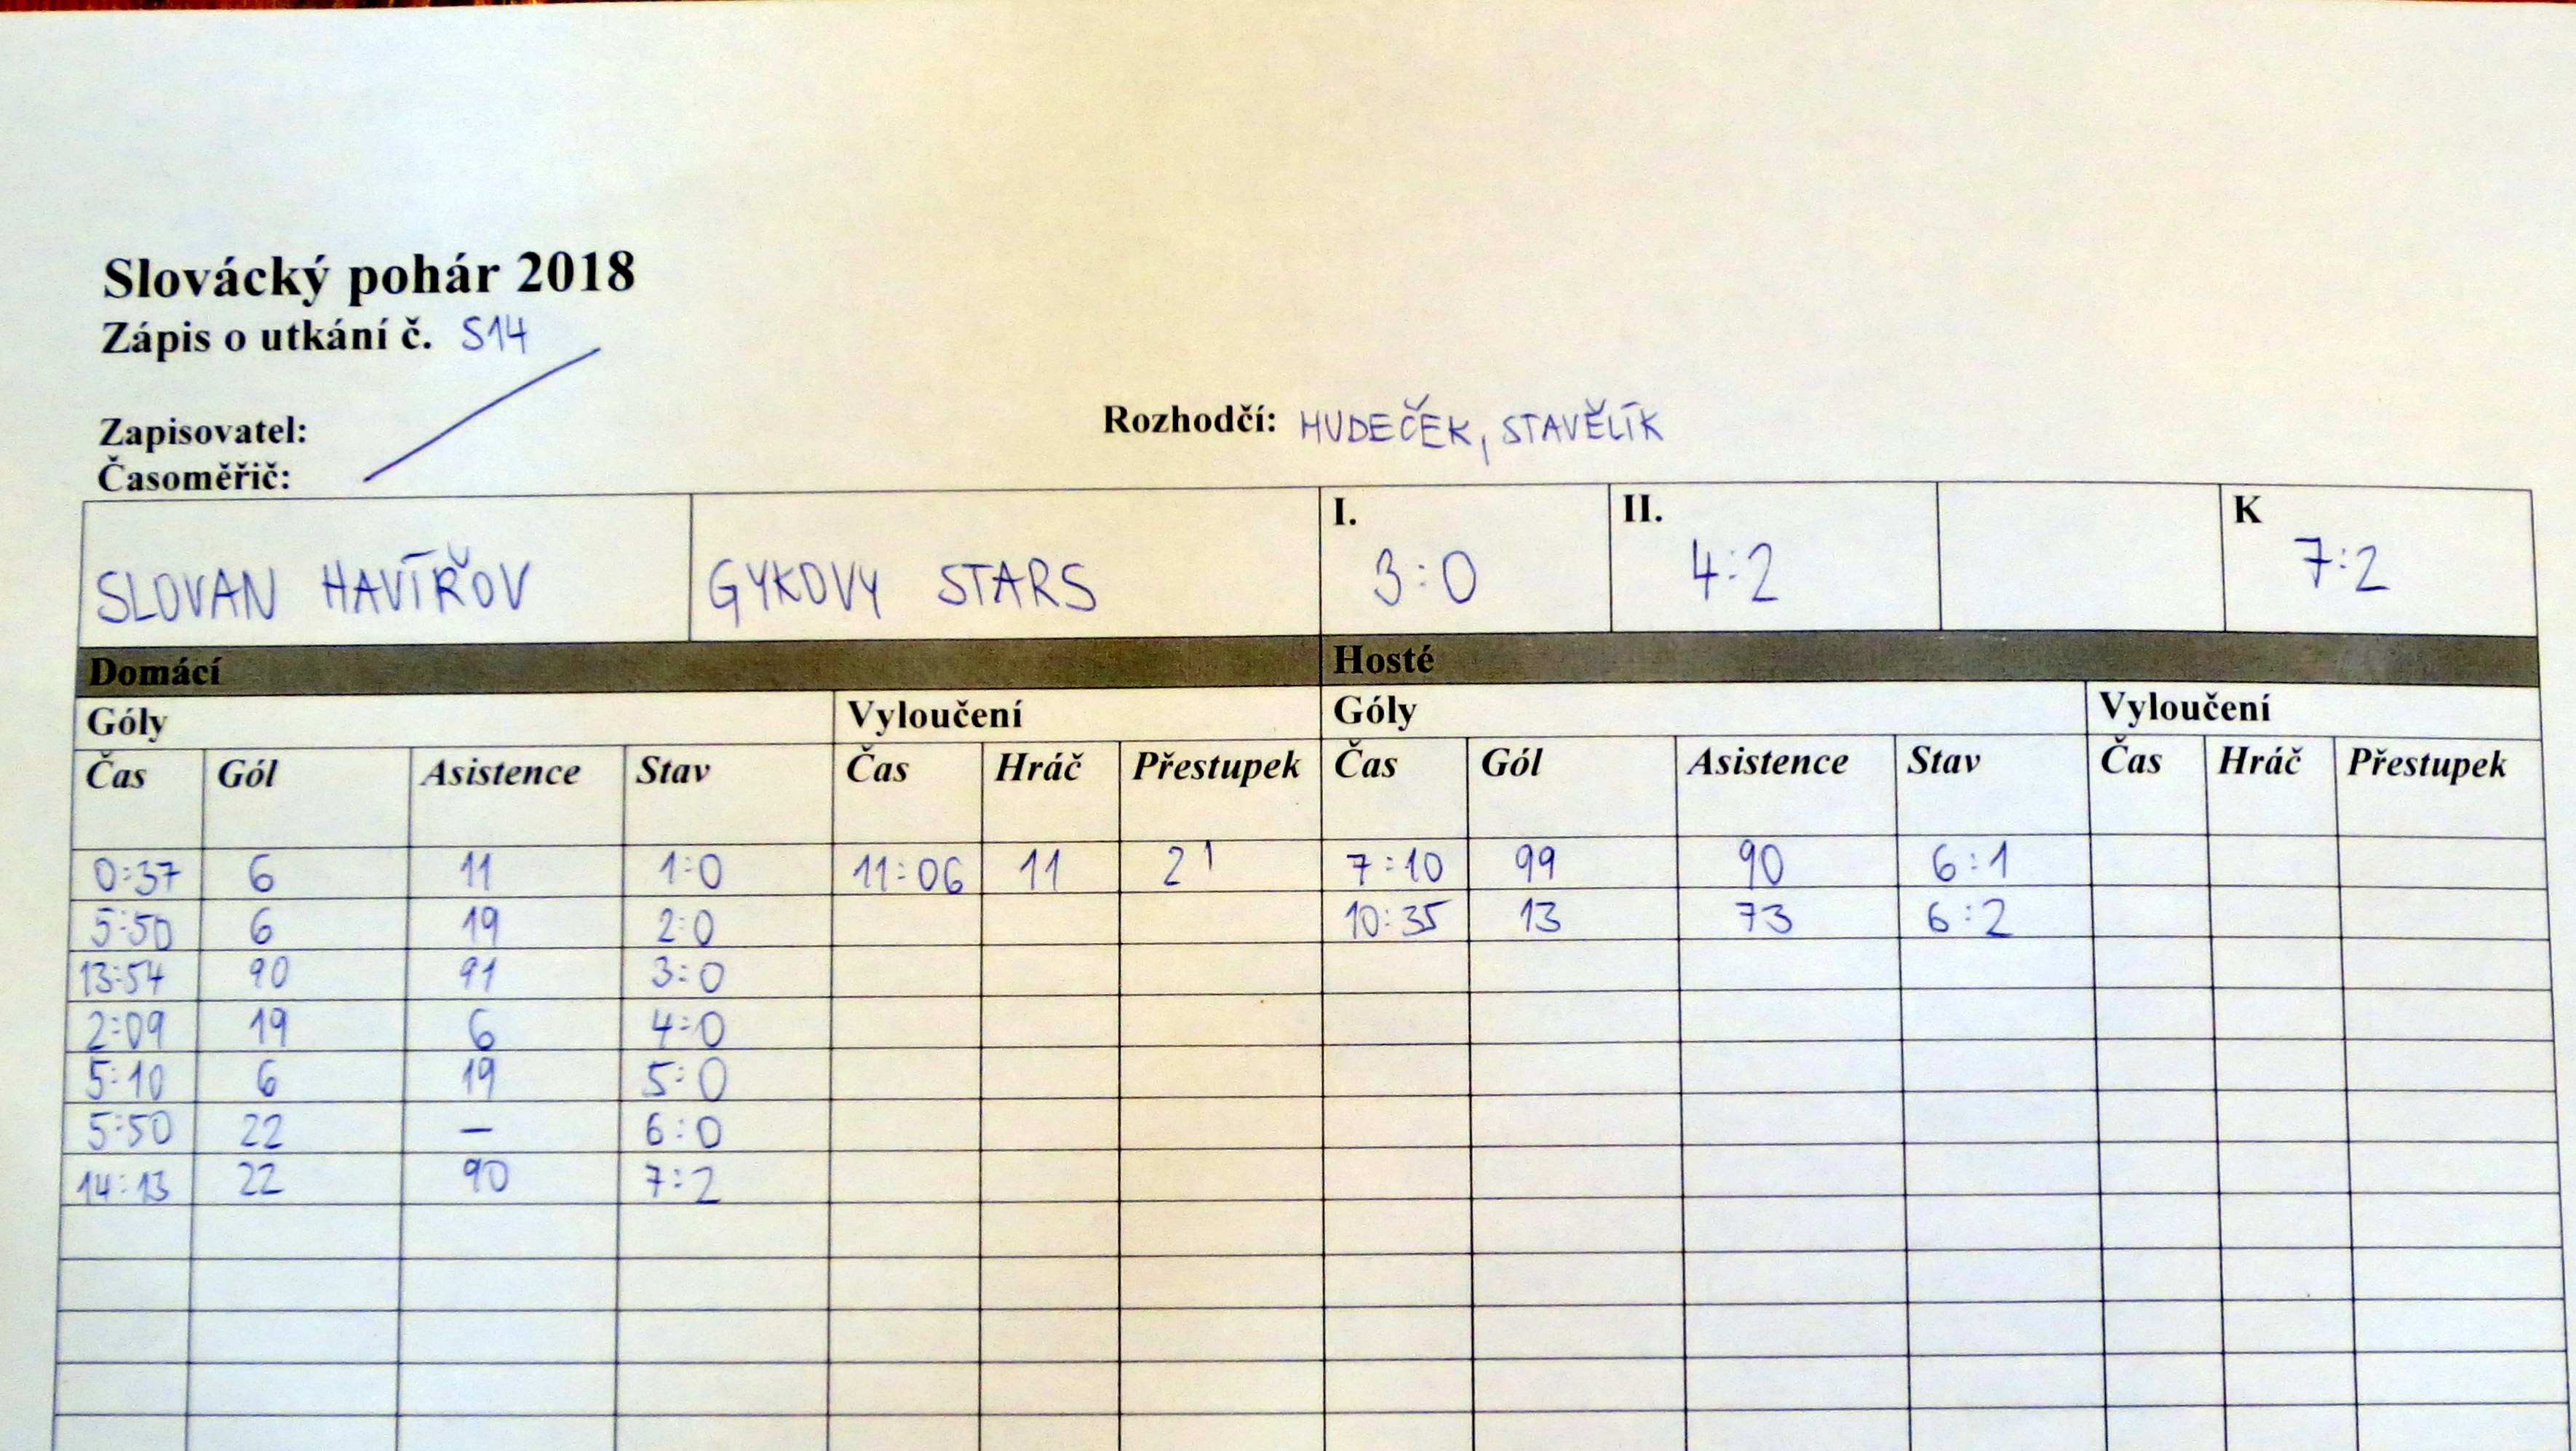 Slovácký pohár 2018
Zápis o utkání č. S14
Zapisovatel:
Rozhodčí: HUDEČEK, STAVĚLÍK
Časoměřič:
SLOVAN HAVÍŘOV GYKOVY STARS I. 3:0 II. 4:2 K 7:2
Domácí Hosté
Góly Vyloučení Góly Vyloučení
Čas Gól Asistence Stav Čas Hráč Přestupek Čas Gól Asistence Stav Čas Hráč Přestupek
0:37 6 11 1:0 11:06 11 2' 7:10 99 90 6:1
5:50 6 19 2:0 10:35 13 73 6:2
13:54 90 91 3:0
2:09 19 6 4:0
5:10 6 19 5:0
5:50 22 – 6:0
14:13 22 90 7:2